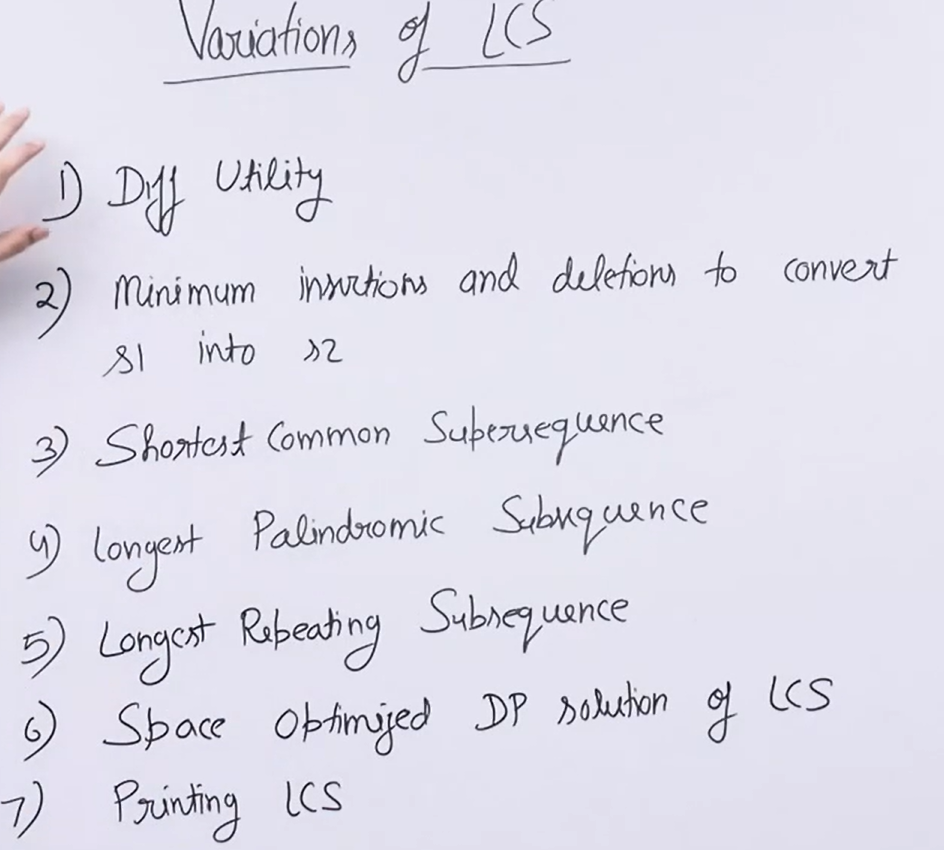 Variations of LCS
1) Diff Utility
2) Minimum insertions and deletions to convert
s1 into s2
3) Shortest Common Supersequence
4) Longest Palindromic Subsequence
5) Longest Repeating Subsequence
6) Space Optimized DP solution of LCS
7) Printing LCS